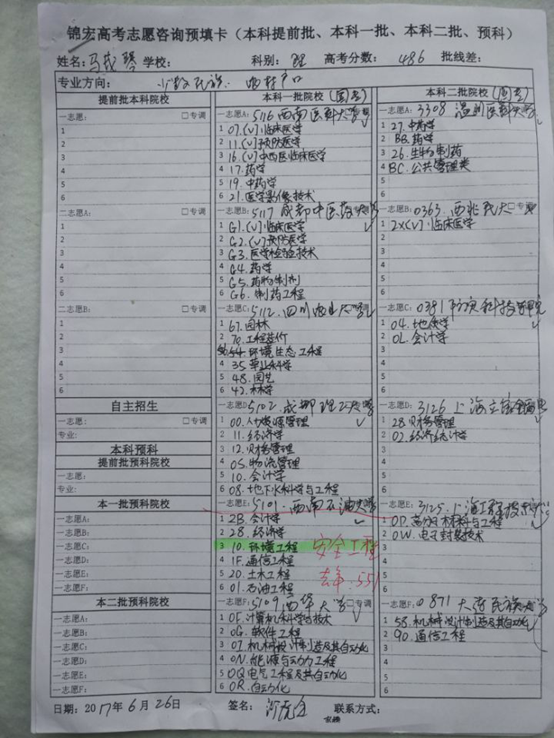 锦宏高考志愿咨询预填卡（本科提前批、本科一批、本科二批、预科）
姓名: 学校: 科别: 理 高考分数: 486 批线差:
专业方向: 少数民族.
提前批本科院校
一志愿: □专调
1
2
3
4
5
6
二志愿A: □专调
1
2
3
4
5
6
二志愿B: □专调
1
2
3
4
5
6
自主招生
一志愿: □专调
专业:
本科预科
提前批预科院校
一志愿:
专业:
本一批预科院校
一志愿A:
一志愿B:
一志愿C:
一志愿D:
一志愿E:
一志愿F:
本二批预科院校
一志愿A:
一志愿B:
一志愿C:
一志愿D:
一志愿E:
一志愿F:
本科一批院校
一志愿A: 5116 西南医科大学
1 07.(V)临床医学
2 11.(V)预防医学
3 16.(V)中西医临床医学
4 17.药学
5 19.中药学
6 21.医学影像技术
一志愿B: 5117 成都中医药大学
1 G1.(V)临床医学
2 G2.(V)预防医学
3 G3.医学检验技术
4 G4.药学
5 G5.药物制剂
6 G6.制药工程
一志愿C: 5112 四川农业大学
1 67.园林
2 70.工程造价
3 环境生态工程
4 35.草业科学
5 48.园艺
6 42.林学
一志愿D: 5102 成都理工大学
1 00.人力资源管理
2 11.经济学
3 12.财务管理
4 05.物流管理
5 10.会计学
6 08.地下水科学与工程
一志愿E: 5101 西南石油大学
1 2B.会计学
2 28.经济学
3 10.环境工程 安全工程
4 1F.通信工程
5 20.土木工程 去年:551
6 01.石油工程
一志愿F: 5109 西华大学 □专调
1 0F.计算机科学与技术
2 0G.软件工程
3 07.机械设计制造及其自动化
4 0N.能源与动力工程
5 0Q.电气工程及其自动化
6 0R.自动化
本科二批院校
一志愿A: 3308 温州医科大学
1 27.中药学
2 BB.药学
3 26.生物制药
4 BC.公共管理类
5
6
一志愿B: 0363 西北民大 □专调
1 2X(V)临床医学
2
3
4
5
6
一志愿C: 0391 防灾科技学院
1 04.地质学
2 0L.会计学
3
4
5
6
一志愿D: 3126 上海立信会计金融
1 28.财务管理
2 02.经济统计学
3
4
5
6
一志愿E: 3125 上海工程技术大学
1 0D.高分子材料与工程
2 0W.电子封装技术
3
4
5
6
一志愿F: 0871 大连民族大学
1 58.机械设计制造及其自动化
2 90.通信工程
3
4
5
6
日期: 2017年6月26日 签名: 联系方式: